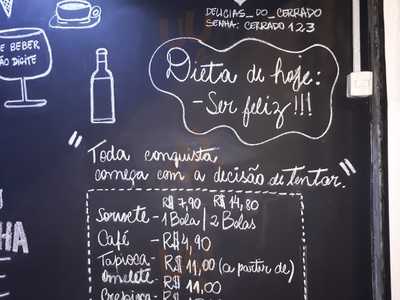 DELICIAS_DO_CERRADO
SENHA: CERRADO 123
E BEBER
ÃO DIGITE
Dieta de hoje:
- Ser feliz!!!
"Toda conquista
começa com a decisão de Tentar."
R$ 7,90 R$ 14,80
Sorvete - 1 Bola | 2 Bolas
Café - R$ 4,90
Tapioca - R$ 11,00 (a partir de)
omelete - R$ 11,00
Crepioca
HA